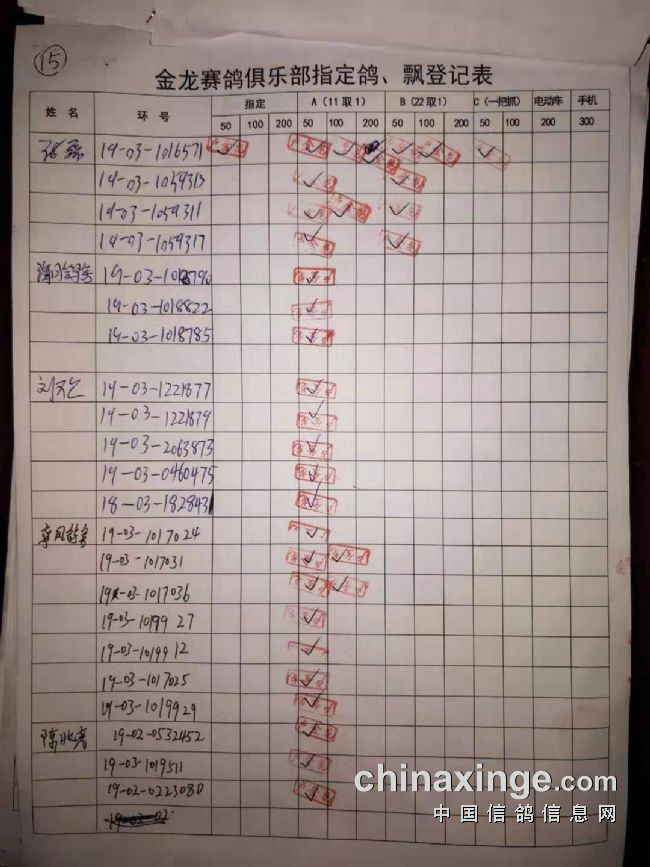 15
金龙赛鸽俱乐部指定鸽、飘登记表
姓名 环号 指定 A(11取1) B(22取1) C(一把抓) 电动车 手机
50 100 200 50 100 200 50 100 200 50 100 200 300
19-03-1016571
19-03-1059313
19-03-1059311
19-03-1059317
19-03-1018790
19-03-1018822
19-03-1018785
19-03-1221877
19-03-1221879
19-03-2063873
19-03-0460475
18-03-182843
19-03-1017024
19-03-1017031
19-03-1017036
19-03-1019927
19-03-1019912
19-03-1017025
19-03-1019929
19-02-0532452
19-03-1019511
19-02-0223080
chinaxinge.com
中国信鸽信息网